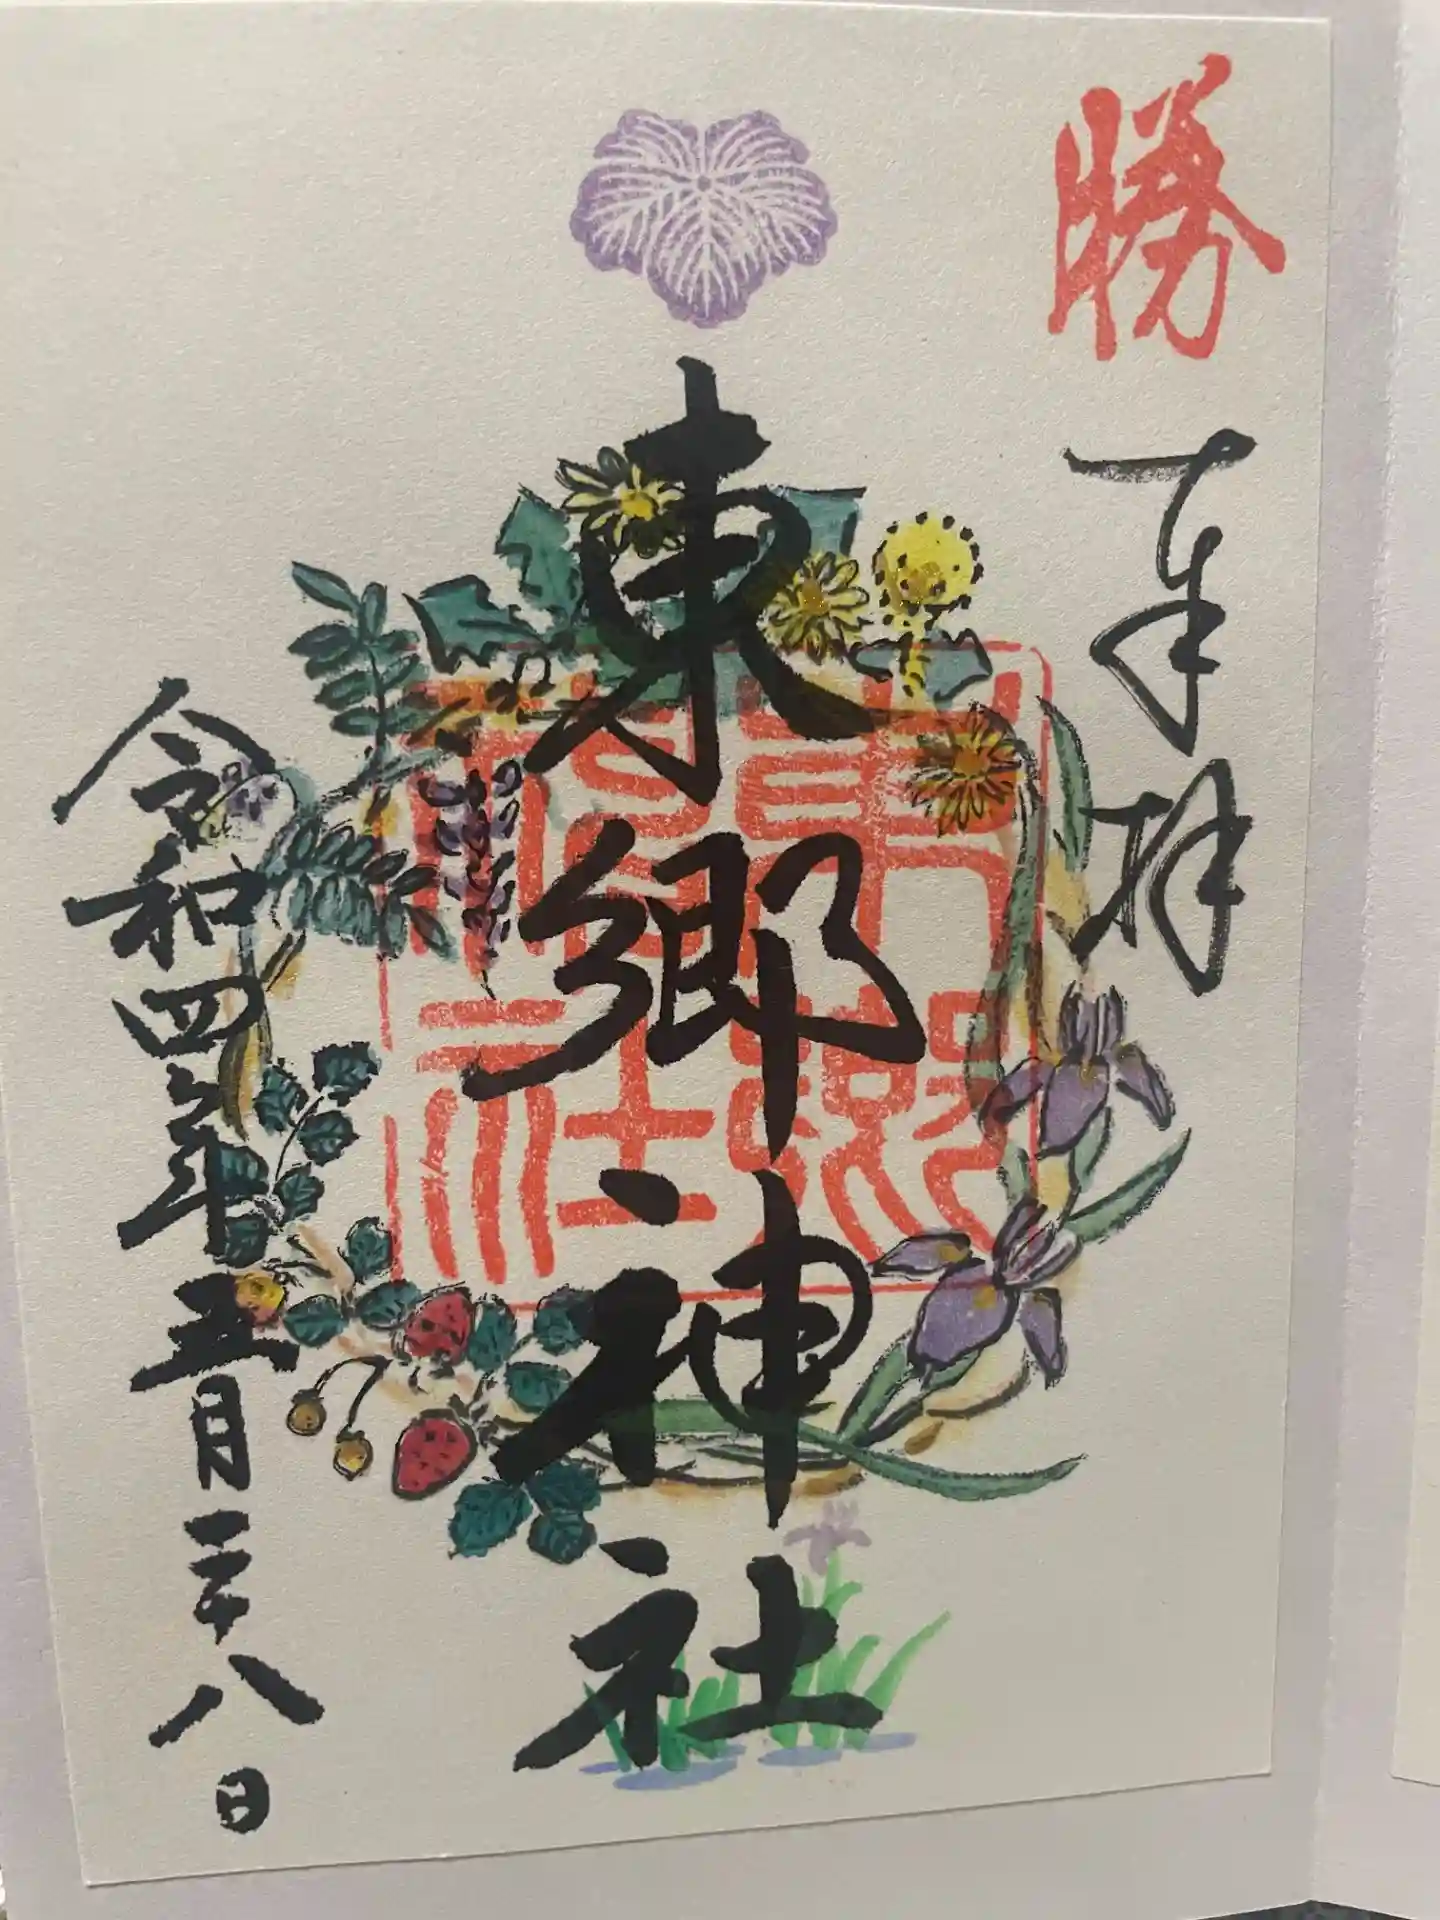 勝
奉拝
東郷神社
令和四年五月二十八日